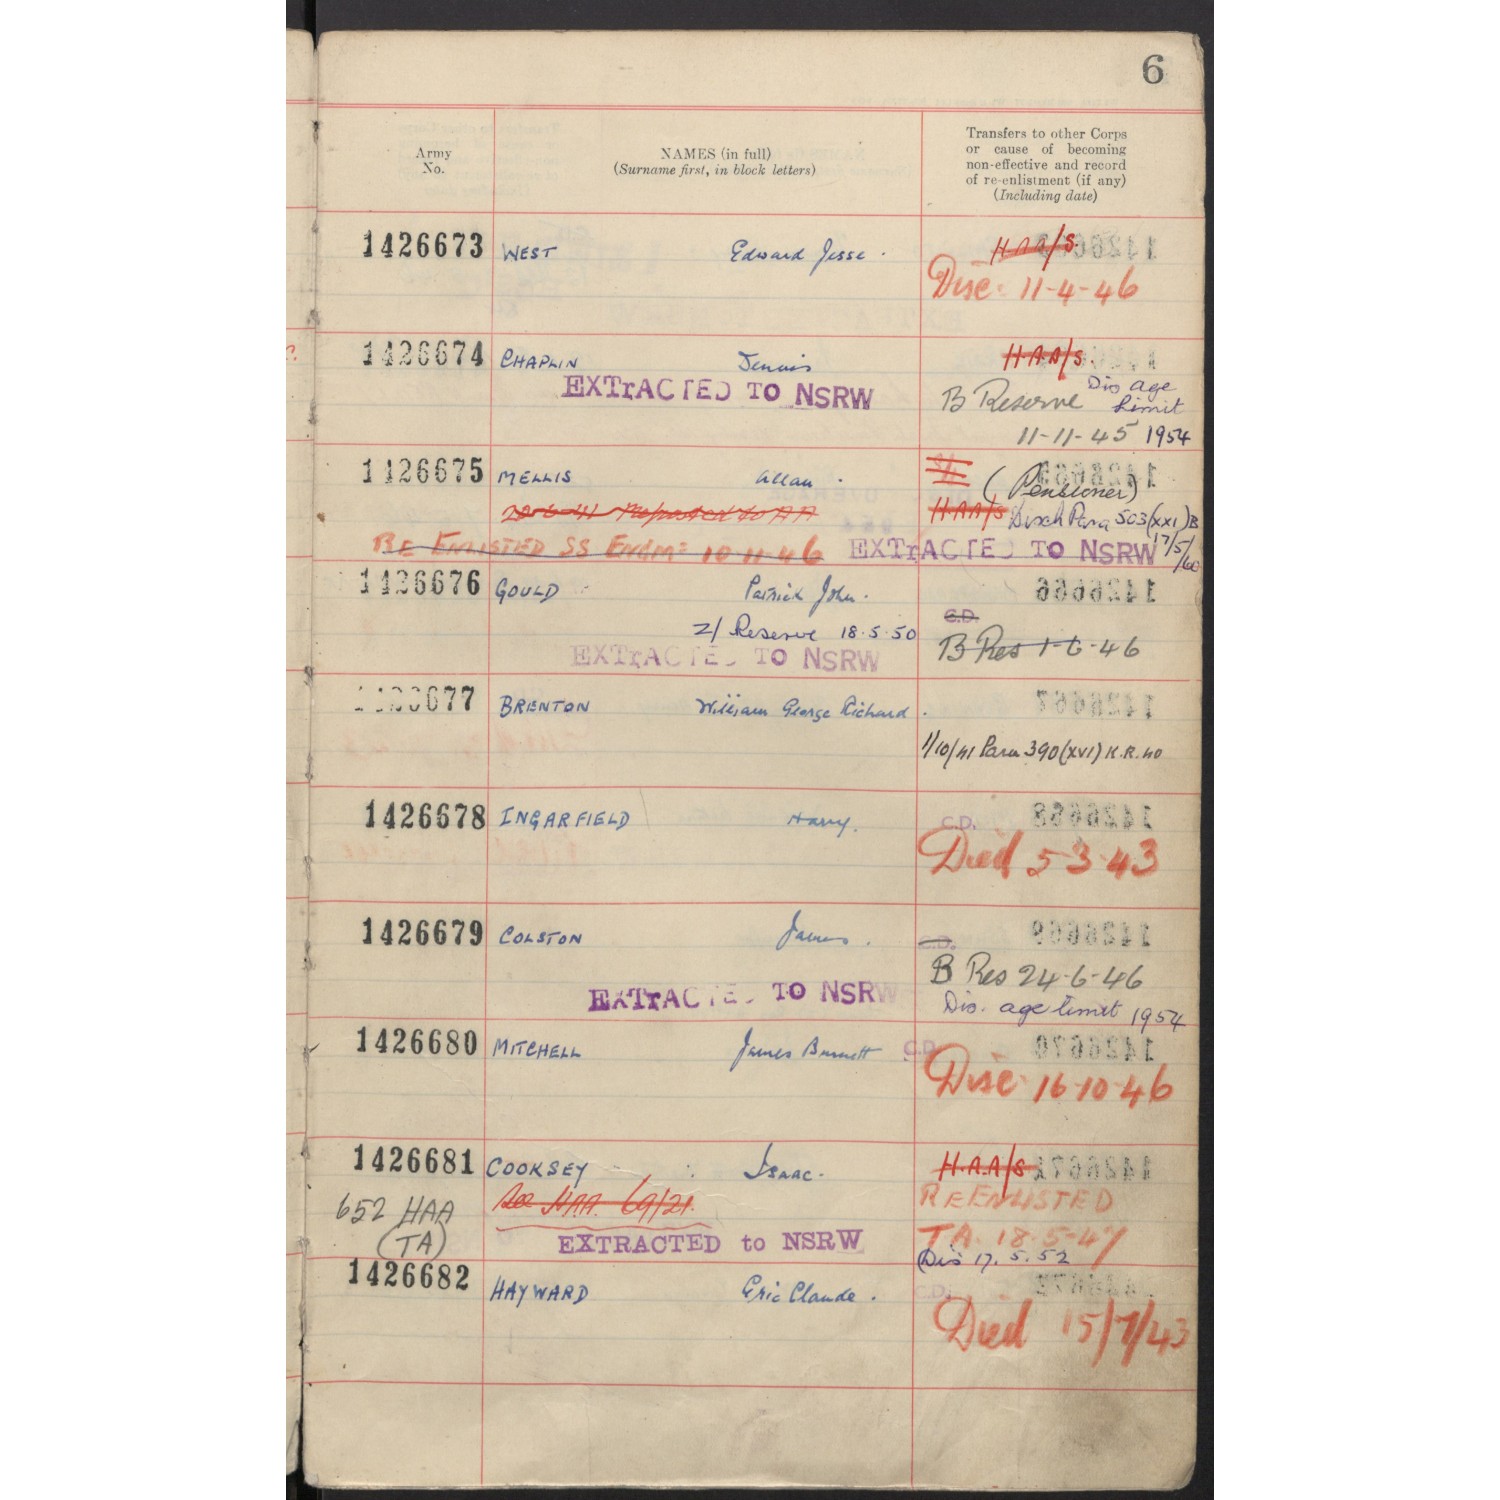 6
Army
No.
NAMES (in full)
(Surname first, in block letters)
Transfers to other Corps
or cause of becoming
non-effective and record
of re-enlistment (if any)
(Including date)
1426673 WEST Edward Jesse . H.A.A/S.
Disc: 11-4-46
1426674 CHAPLIN Dennis H.A.A/S.
EXTrACTED TO NSRW B Reserve Dis age
limit
11-11-45 1954
1426675 MELLIS Allan . (Pensioner)
20-6-41 Reposted to AA H.A.A/S Disch Para 503(XXI)B
17/5/60
RE ENLISTED SS Engm= 10-11-46 EXTrACTED TO NSRW
1426676 GOULD Patrick John .
C.D.
Z/ Reserve 18.5.50 B Res 1-6-46
EXTrACTED TO NSRW
1426677 BRENTON William George Richard .
1/10/41 Para 390(XVI) K.R.40
1426678 INGARFIELD Harry. C.D.
Died 5-3-43
1426679 COLSTON James . C.D.
B Res 24-6-46
EXTrACTED TO NSRW Dis. age limit 1954
1426680 MITCHELL James Burnett C.D.
Disc 16-10-46
1426681 COOKSEY Isaac. H.A.A/S
652 HAA See HAA 69/21. REENLISTED
(TA) EXTRACTED to NSRW TA. 18-5-47
(Dis 17.5.52
1426682 HAYWARD Eric Claude . C.D.
Died 15/7/43